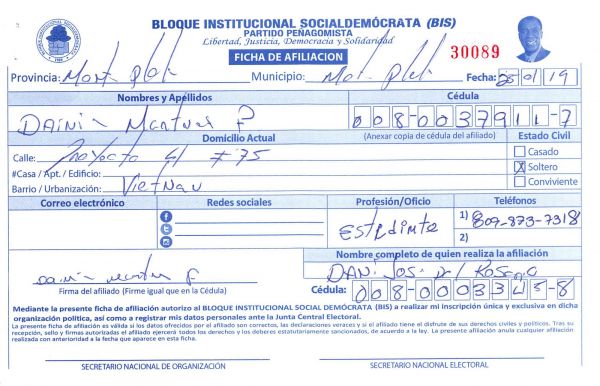 BLOQUE INSTITUCIONAL SOCIALDEMÓCRATA (BIS)
PARTIDO PEÑAGOMISTA
Libertad, Justicia, Democracia y Solidaridad
FICHA DE AFILIACION
30089
Provincia: Mont Plat
Municipio: Mont Plat
Fecha: 25 01 19
Nombres y Apellidos
Cédula
DAININ P
008-0037911-7
Domicilio Actual
(Anexar copia de cédula del afiliado)
Estado Civil
Calle: Proyecto 4 # 75
Casado
#Casa / Apt. / Edificio:
X Soltero
Barrio / Urbanización: Vietnan
Conviviente
Correo electrónico
Redes sociales
Profesión/Oficio
Teléfonos
Estudiante
1) 809-873-7318
2)
Nombre completo de quien realiza la afiliación
DANi Josi del Rosario
Firma del afiliado (Firme igual que en la Cédula)
Cédula: 008-0003345-8
Mediante la presente ficha de afiliación autorizo al BLOQUE INSTITUCIONAL SOCIAL DEMÓCRATA (BIS) a realizar mi inscripción única y exclusiva en dicha
organización política, así como a registrar mis datos personales ante la Junta Central Electoral.
La presente ficha de afiliación es válida si los datos ofrecidos por el afiliado son correctos, las declaraciones veraces y si el afiliado tiene el disfrute de sus derechos civiles y políticos. Tras su
recepción, sello y firmas autorizadas el afiliado ejercerá todos los derechos y los deberes estatutariamente sancionados, de acuerdo a la ley. La presente afiliación anula cualquier afiliación
realizada con anterioridad a la fecha que aparece en esta ficha.
SECRETARIO NACIONAL DE ORGANIZACIÓN
SECRETARIO NACIONAL ELECTORAL